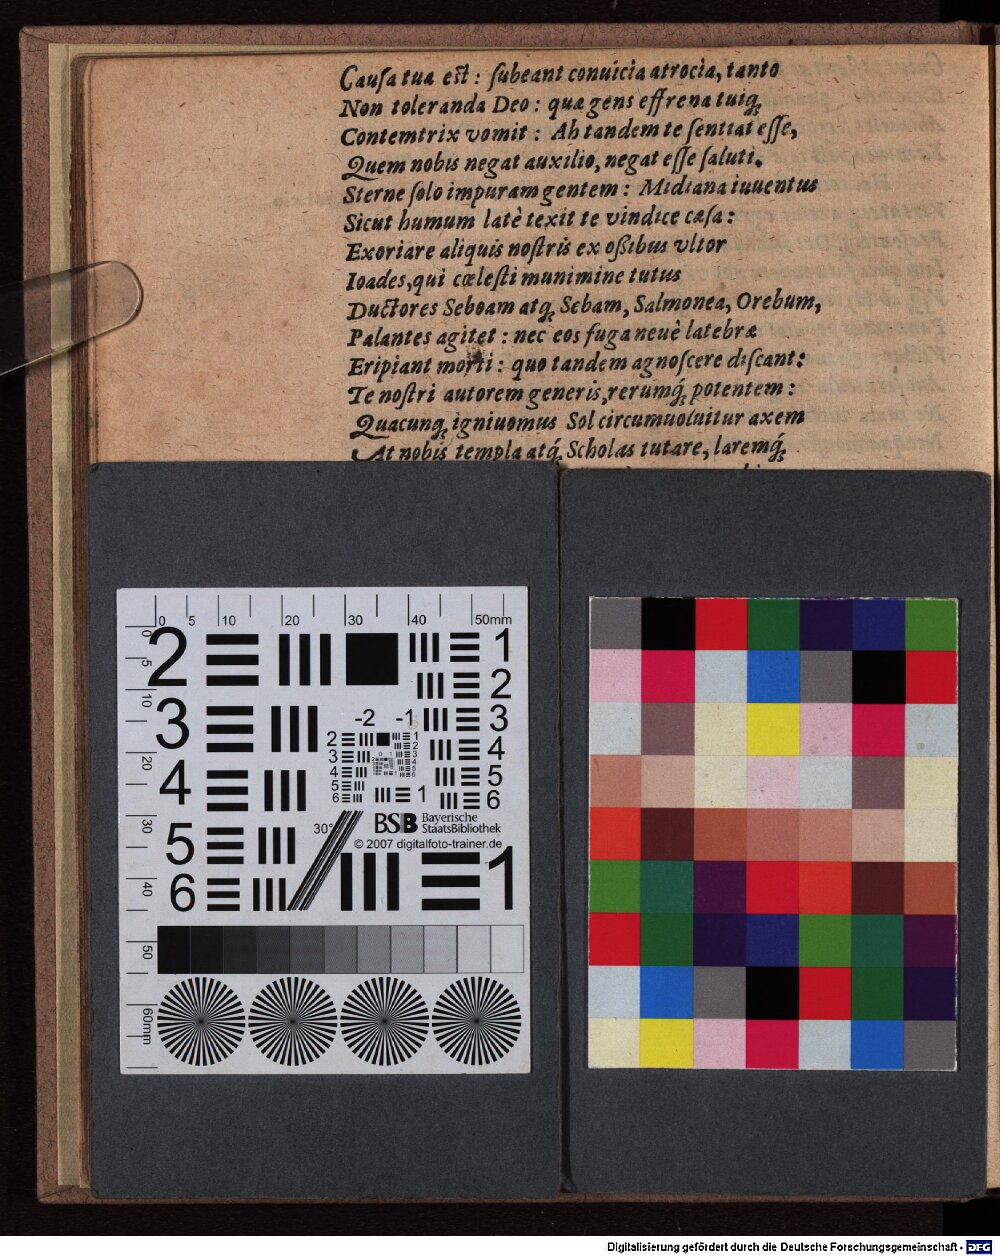 Cauſa tua est : ſubeant conuicia atrocia, tanto
Non toleranda Deo : quæ gens effrena tuiq́
Contemtrix vomit : Ah tandem te ſentiat eſſe,
Quem nobis negat auxilio, negat eſſe ſaluti.
Sterne ſolo impuram gentem : Midiana iuuentus
Sicut humum latè texit te vindice cæſa :
Exoriare aliquis noſtris ex oßibus vltor
Ioades, qui cœleſti munimine tutus
Ductores Seboam atq́, Sebam, Salmonea, Orebum,
Palantes agitet : nec eos fuga neuè latebræ
Eripiant morti : quo tandem agnoſcere diſcant:
Te noſtri autorem generis, rerumq́, potentem :
Quacunq́, igniuomus Sol circumuoluitur axem
At nobis templa atq́, Scholas tutare, laremq́,
0 5 10 20 30 40 50mm
0 5 10 20 30 40 50 60mm
2 1
2
3 3
4 4
5 5
6 6
-2 -1
2 1
3 2
4 3
5 4
6 5
6
1
30°
BSB Bayerische
StaatsBibliothek
© 2007 digitalfoto-trainer.de
1
Digitalisierung gefördert durch die Deutsche Forschungsgemeinschaft - DFG